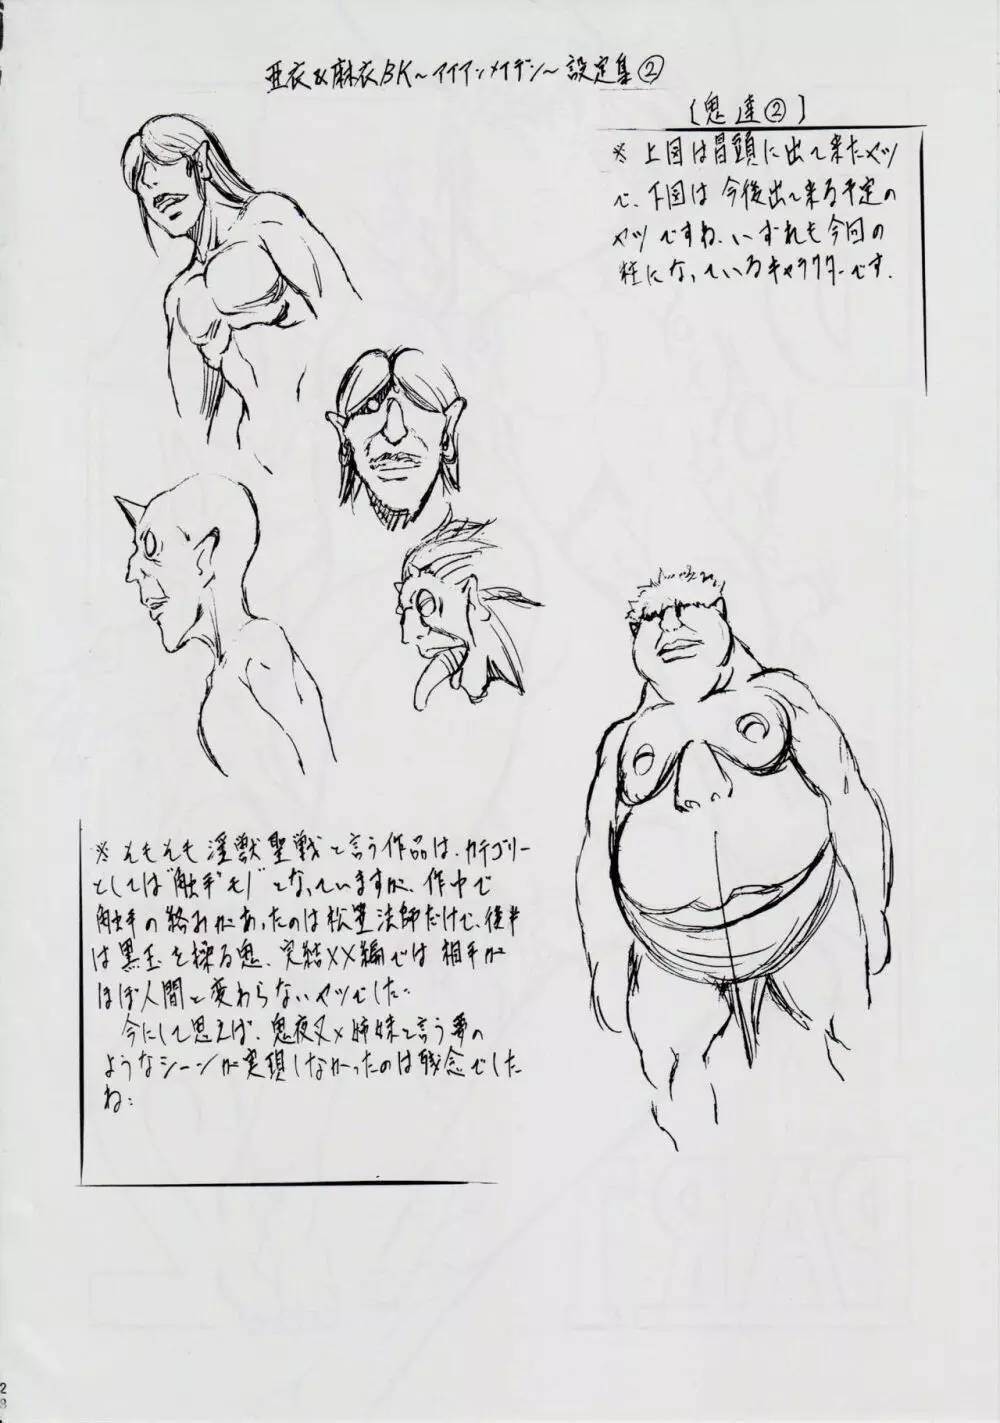 亜衣&麻衣BK～アイアンメイデン～設定集②
〔鬼達②〕
※上図は冒頭に出て来たヤツ
で、下図は今後出て来る予定の
ヤツですね、いずれも今回の
柱になっているキャラクターです.
※そもそも淫獣聖戦と言う作品は、カテゴリー
としては“触手モノ”となっていますが、作中で
触手の絡みがあったのは松笠法師だけで、後半
は黒玉を操る鬼、完結××編では相手が
ほぼ人間と変わらないヤツでした…
今にして思えば、鬼夜叉×姉妹と言う夢の
ようなシーンが実現しなかったのは残念でした
ね…
28